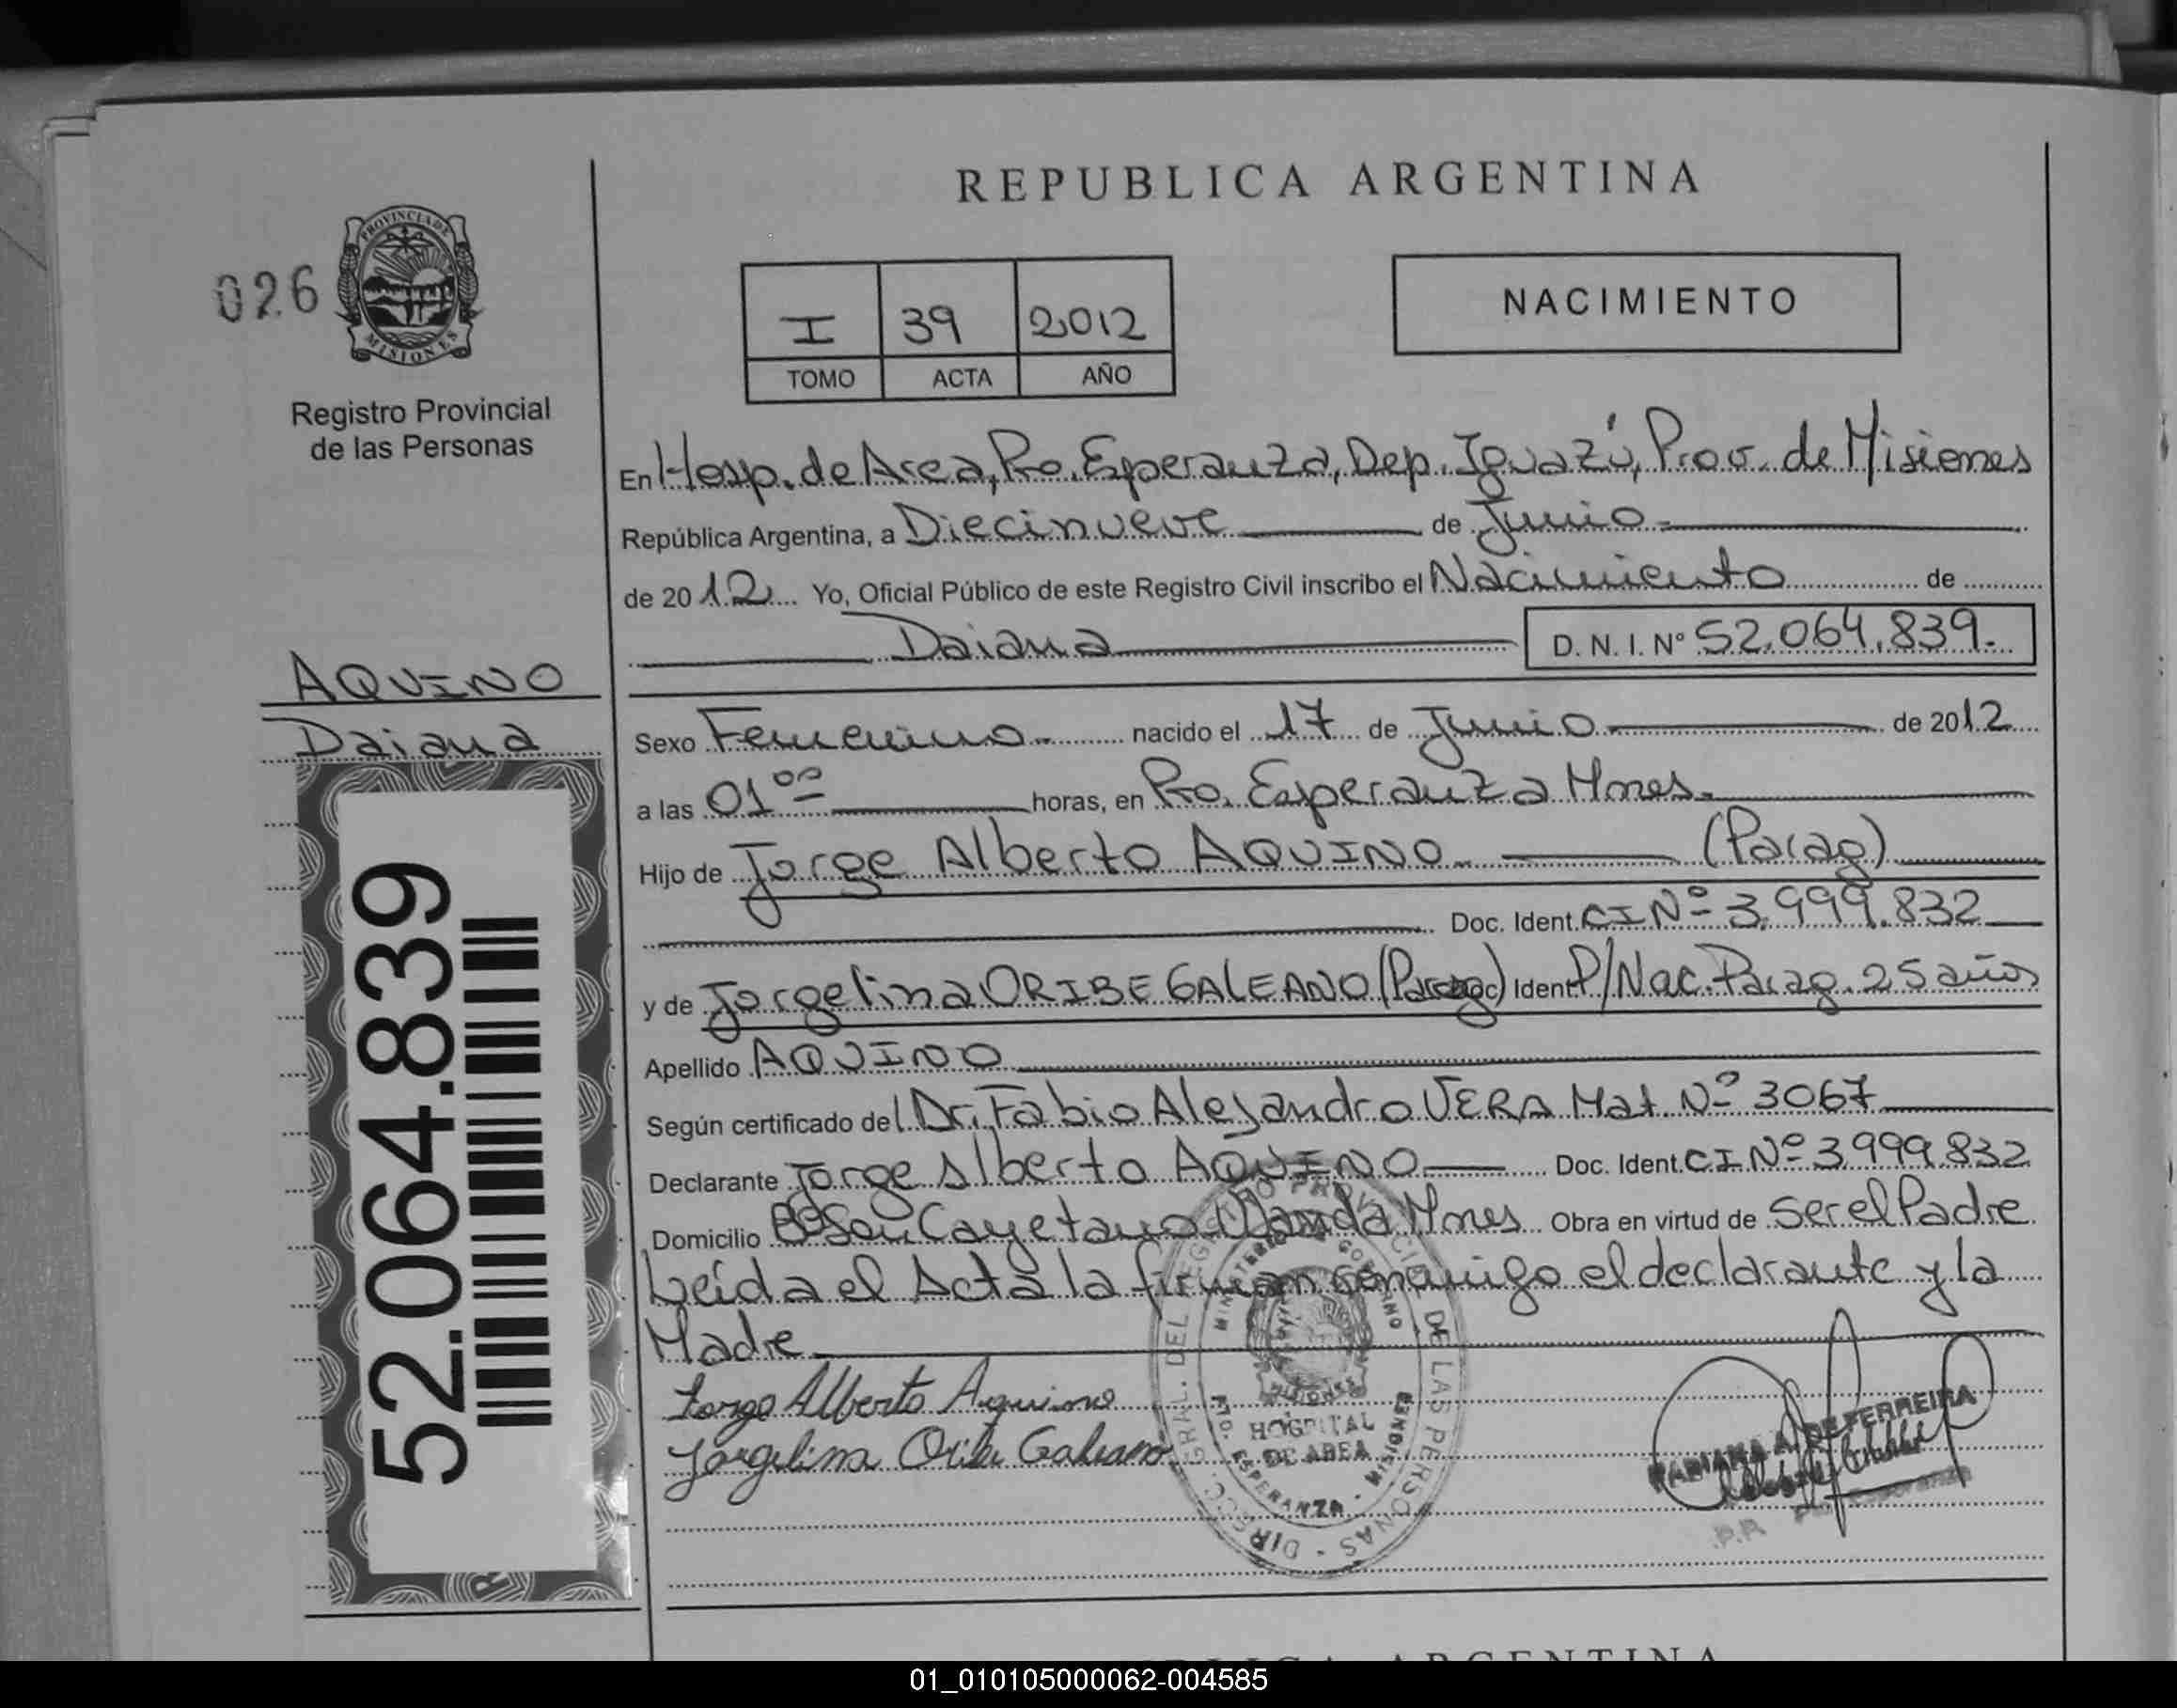 REPUBLICA ARGENTINA
026
PROVINCIA DE
MISIONES
Registro Provincial
de las Personas
I 39 2012
TOMO ACTA AÑO
NACIMIENTO
En Hosp. de Area, Pto. Esperanza, Dep. Iguazú, Prov. de Misiones
República Argentina, a Diecinueve de Junio
de 2012 Yo, Oficial Público de este Registro Civil inscribo el Nacimiento de
Daiana D. N. I. Nº 52.064.839.
AQUINO
Daiana
52.064.839
Sexo Femenino nacido el 17 de Junio de 2012
a las 01 00 horas, en Pto. Esperanza Mnes.
Hijo de Jorge Alberto AQUINO (Parag)
Doc. Ident. CI Nº 3.999.832
y de Jorgelina ORIBE GALEANO (Parag) Ident. P/Nac. Parag. 25 años
Apellido AQUINO
Según certificado del Dr. Fabio Alejandro VERA Mat. Nº 3067
Declarante Jorge Alberto AQUINO Doc. Ident. CI Nº 3.999.832
Domicilio Bº San Cayetano Wanda Mnes Obra en virtud de ser el Padre
Leída el Acta la firman conmigo el declarante y la
Madre
Jorge Alberto Aquino
Jorgelina Oribe Galeano
DIRECC. GRAL. DEL REGISTRO PROVINCIAL DE LAS PERSONAS
MINISTERIO DE GOBIERNO
MISIONES
HOSPITAL
DE AREA
PTO. ESPERANZA - MISIONES
DE FERREIRA
01_010105000062-004585